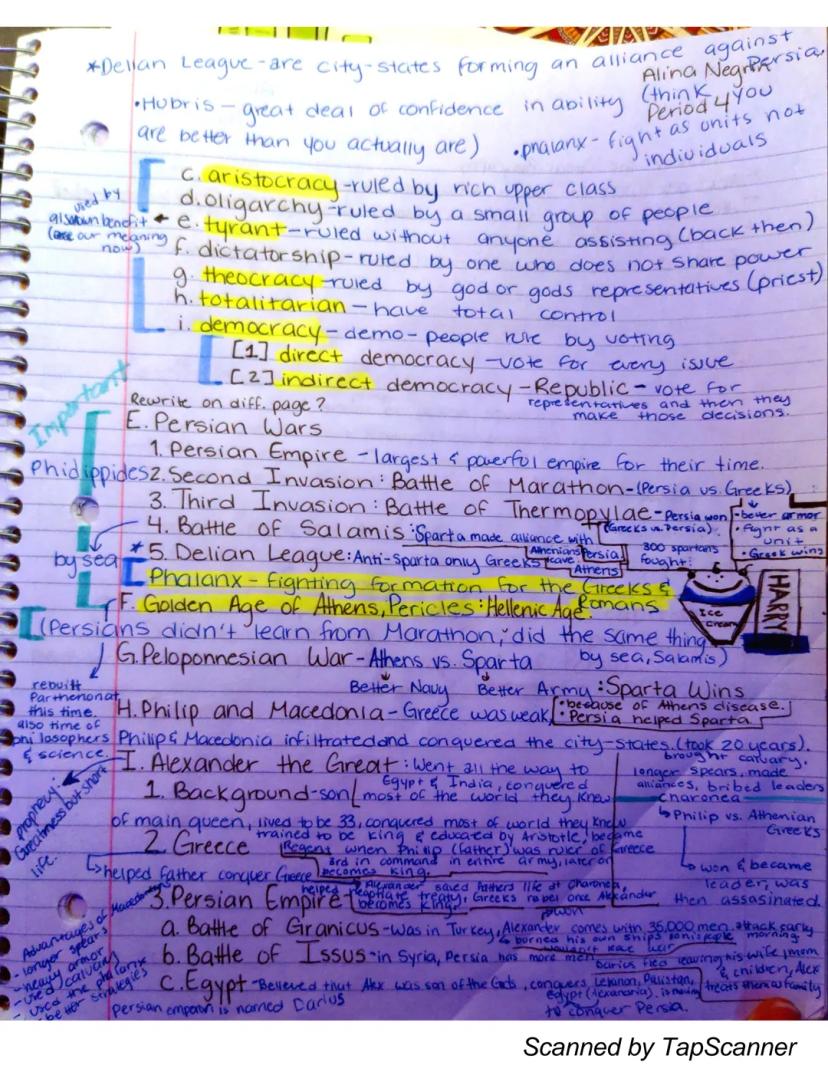 *Delian League-are city-states forming an alliance against Persia.
Alina Negr
Period 4
•Hubris- great deal of confidence in ability (think you
are better than you actually are) •phalanx- fight as units not
individuals
c. aristocracy-ruled by rich upper class
d. oligarchy-ruled by a small group of people
used by
own benefit
our meaning
now)
e. tyrant-ruled without anyone assisting (back then)
f. dictatorship-ruled by one who does not share power
g. theocracy-ruled by god or gods representatives (priest)
h. totalitarian-have total control
i. democracy-demo-people rule by voting
[1] direct democracy-vote for every issue
[2] indirect democracy-Republic-vote for
representatives and then they
make those decisions.
Important
Rewrite on diff. page?
E. Persian Wars
1. Persian Empire -largest & powerful empire for their time.
Phidippides 2. Second Invasion: Battle of Marathon-(Persia vs. Greeks)
•better armor
•fight as a
unit
•Greek wins
3. Third Invasion: Battle of Thermopylae-Persia won
(Greeks vs. Persia).
300 spartans
fought.
by sea
4. Battle of Salamis: Sparta made alliance with
Persia
*5. Delian League: Anti-Sparta only Greeks
Athenians
Athens
Phalanx-fighting formation for the Greeks &
Romans
F. Golden Age of Athens, Pericles: Hellenic Age.
Ice
cream
HARRY
(Persians didn't learn from Marathon, did the same thing
by sea, Salamis)
G. Peloponnesian War-Athens vs. Sparta
Better Navy Better Army: Sparta Wins
rebuilt
Parthenon at
this time.
also time of
philosophers
& science.
H. Philip and Macedonia-Greece was weak
•because of Athens disease.
•Persia helped Sparta.
Philip & Macedonia infiltrated and conquered the city-states. (took 20 years).
brought calvary,
longer spears, made
alliances, bribed leaders
charonea
Philip vs. Athenian
Greeks
won & became
leader, was
then assasinated.
I. Alexander the Great: Went all the way to
Egypt & India, conquered
most of the world they knew
prophecy:
Greatness but short
life.
1. Background-son
of main queen, lived to be 33, conquered most of world they knew
trained to be king & educated by Aristotle, became
2. Greece
Regent when Philip (father) was ruler of Greece
3rd in command in entire army, later on
becomes king.
helped father conquer Greece
3. Persian Empire-
Alexander saved fathers life at Charonea,
helped negotiate treaty, Greeks rebel once Alexander
becomes king.
a. Battle of Granicus-Was in Turkey, Alexander comes with 35,000 men. attack early
morning
burned his own ships
b. Battle of Issus-in Syria, Persia has more men.
Darius fled leaving his wife, mom
& children, Alex
treats them as family
c. Egypt-Believed that Alex was son of the Gods, conquers Lebanon,
Egypt (Alexandria).
to conquer Persia.
Advantages of Macedonian
- longer spears
- heavy armor
- used calvary
- used the phalanx
- better strategies
Persian emperor is named Darius
Scanned by TapScanner